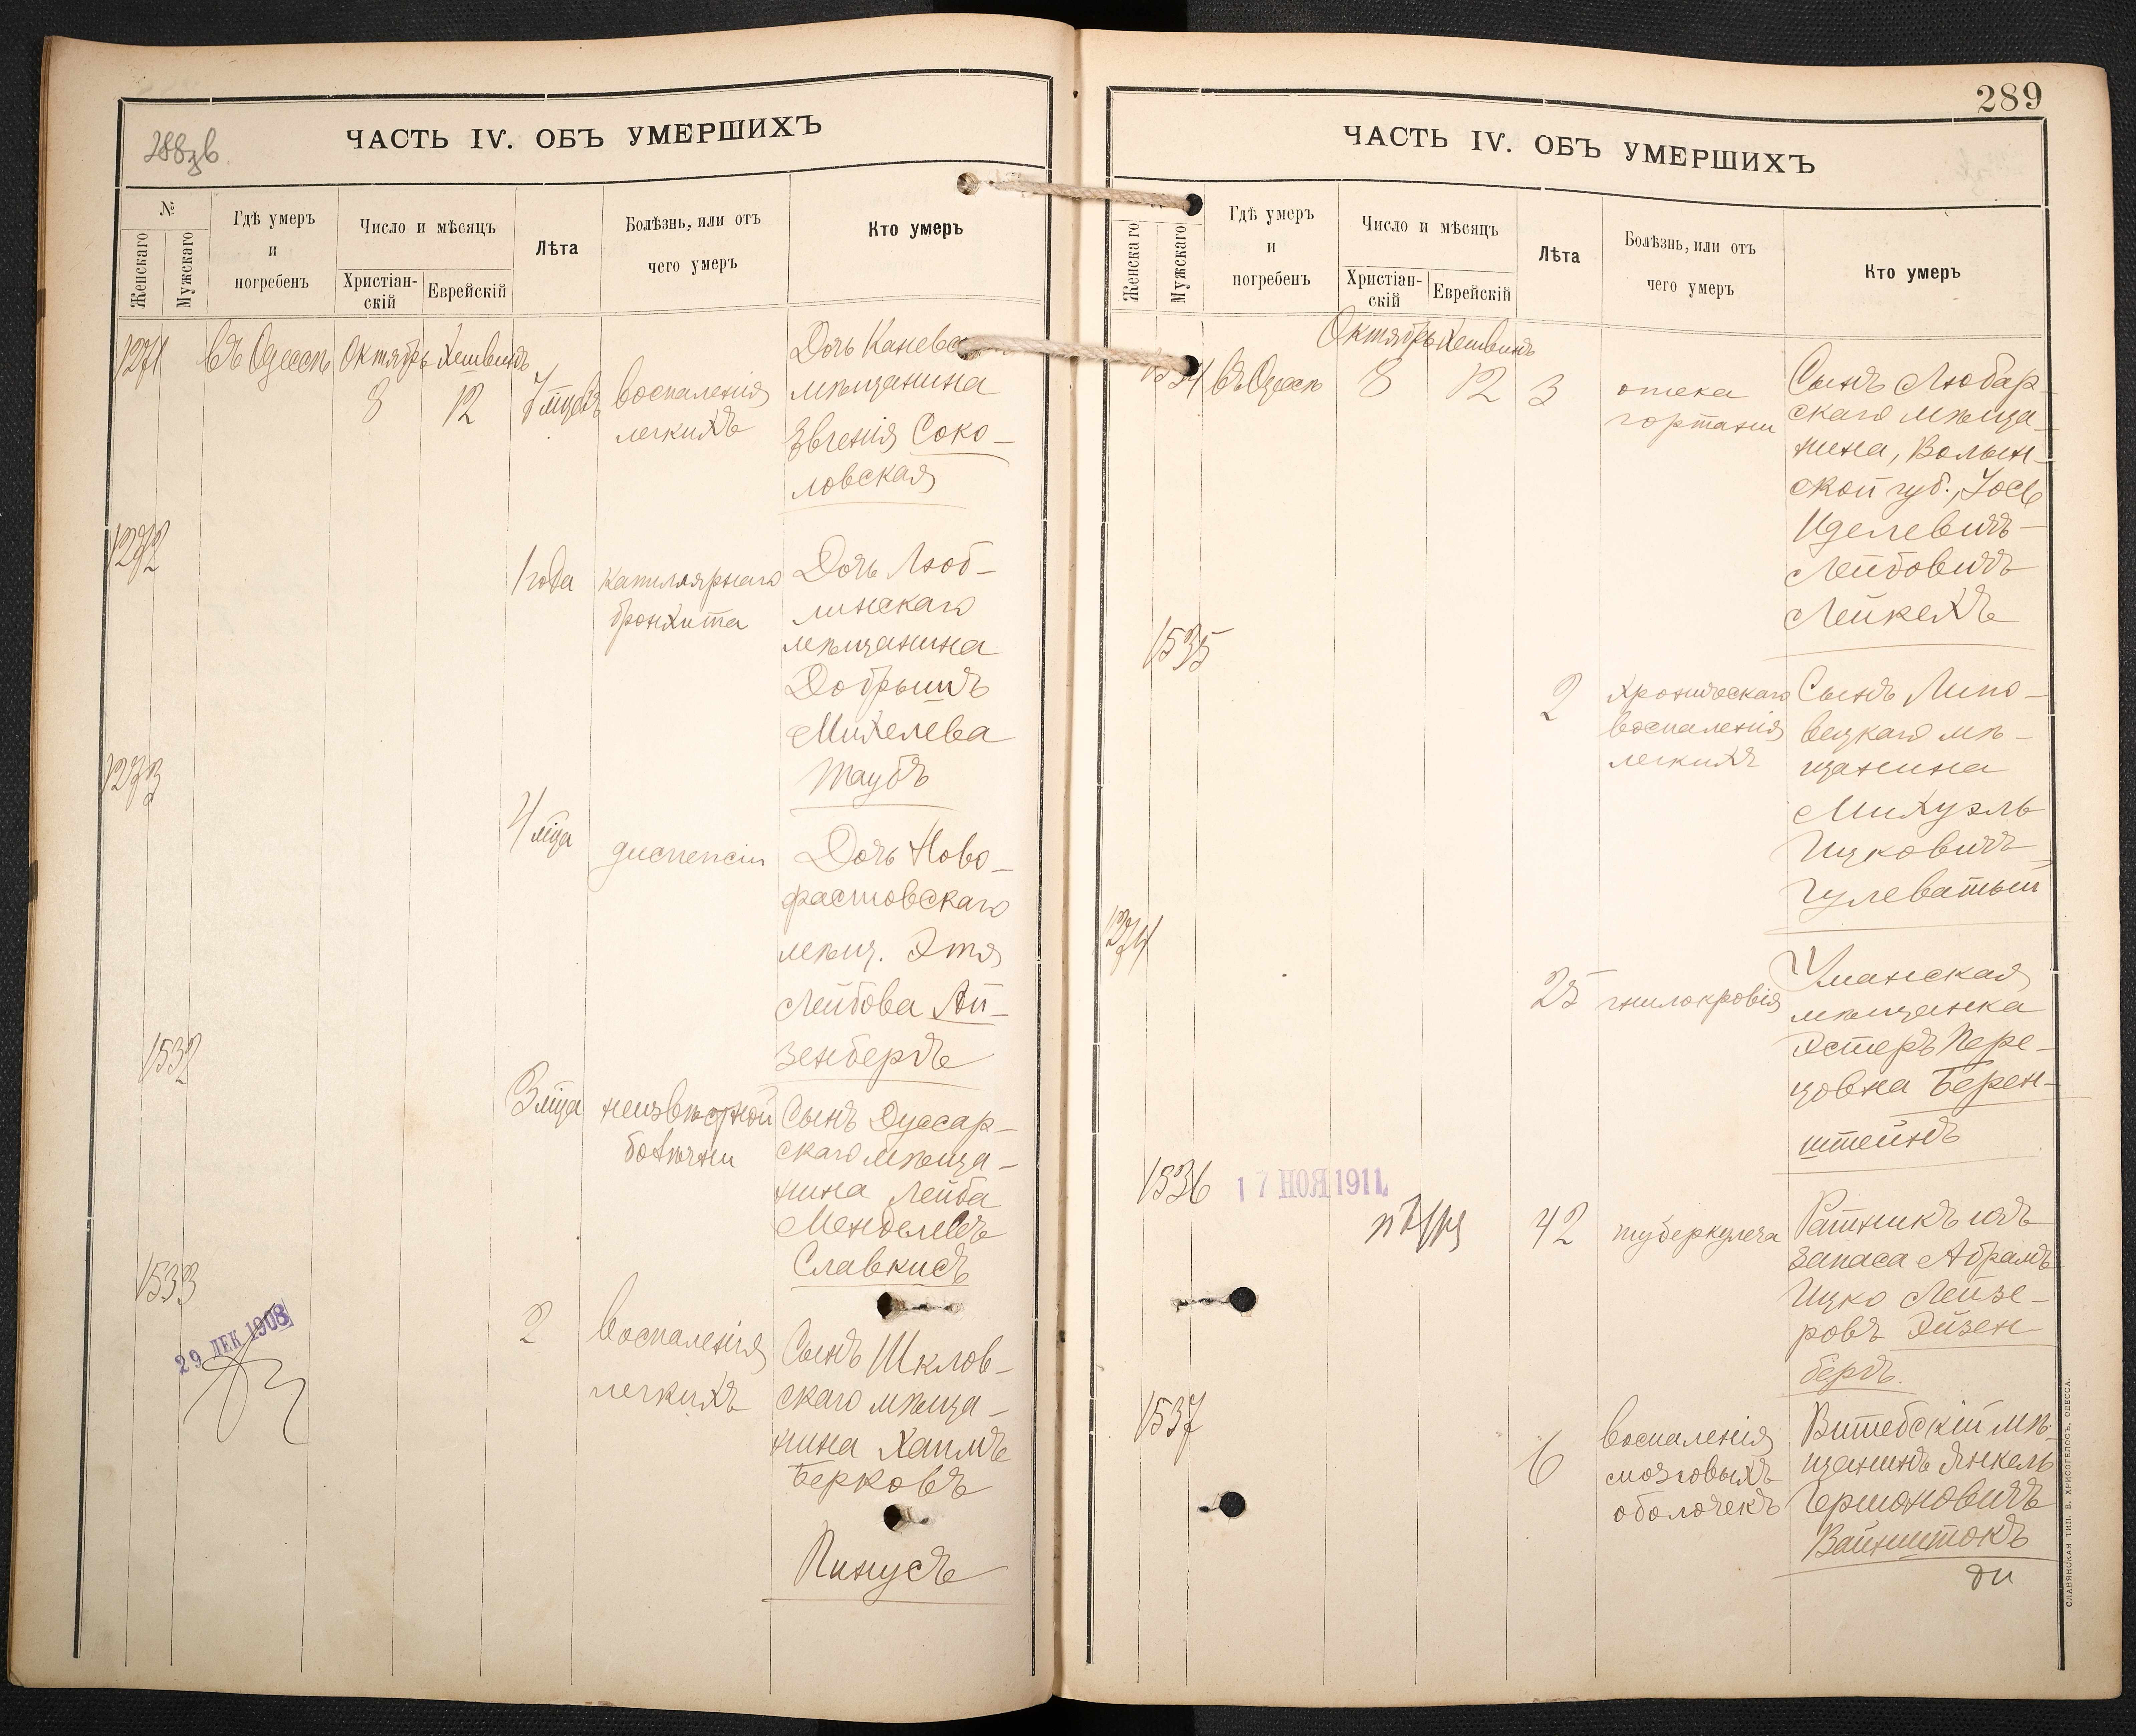 288зв
ЧАСТЬ IV. ОБЪ УМЕРШИХЪ
№
Женскаго
Мужскаго
Гдѣ умеръ
и
погребенъ
Число и мѣсяцъ
Христіан-
скій
Еврейскій
Лѣта
Болѣзнь, или отъ
чего умеръ
Кто умеръ
1271
въ Одессѣ
Октябрь
Хешвинъ
8
12
7 мцевъ
воспаленія
легкихъ
Дочь
мѣщанина
Евгенія Соко-
ловская
1272
1 года
капиллярнаго
бронхита
Дочь Люб-
линскаго
мѣщанина
Добрышъ
Михелева
Таубъ
1273
4 мца
диспепсіи
Дочь Ново-
фастовскаго
мѣщ. Этя
Лейбова Ай-
зенбергъ
1532
3 мца
неизвѣстной
болѣзни
Сынъ Дуссар-
скаго мѣща-
нина Лейба
Менделевъ
Славкисъ
1533
29 ДЕК 1908
2
воспаленія
легкихъ
Сынъ Шклов-
скаго мѣща-
нина Хаимъ
Берковъ
Пинусъ
289
ЧАСТЬ IV. ОБЪ УМЕРШИХЪ
Женскаго
Мужскаго
Гдѣ умеръ
и
погребенъ
Число и мѣсяцъ
Христіан-
скій
Еврейскій
Лѣта
Болѣзнь, или отъ
чего умеръ
Кто умеръ
1534
въ Одессѣ
Октябрь
Хешвинъ
8
12
3
отека
гортани
Сынъ Любар-
скаго мѣща-
нина, Волын-
ской губ., Іось
Иделевичъ-
Лейбовичъ
Лейкехъ
1535
2
хроническаго
воспаленія
легкихъ
Сынъ Липо-
вецкаго мѣ-
щанина
Михуэль
Ицковичъ
Гулеватый
1274
25
гнилокровія
Уманская
мѣщанка
Эстеръ Пере-
цовна Берен-
штейнъ
1536
17 НОЯ 1911
42
туберкулеза
Ратникъ изъ
запаса Абрамъ
Ицко Лейзе-
ровъ Айзен-
бергъ.
1537
6
воспаленія
мозговыхъ
оболочекъ
Витебскій мѣ-
щанинъ Янкель
Гершоновичъ
Вайнштокъ
СЛАВЯНСКАЯ ТИП. Е. ХРИСОГЕЛОСЪ, ОДЕССА.